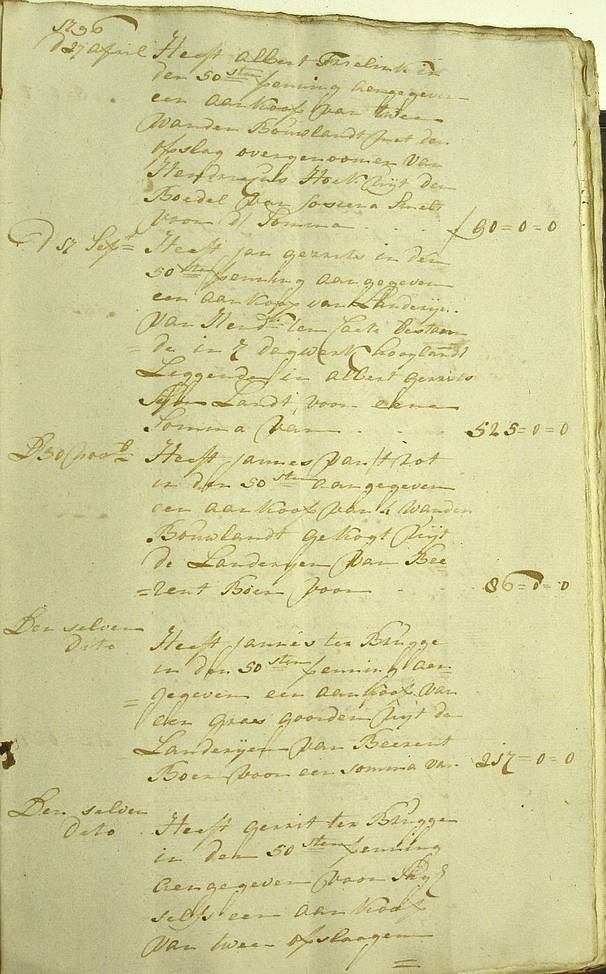 1736
d 27 april Heeft albert Tarelink in
den 50 sten penning aangegeven
een aankoof van twee
wanden Bouwlandt met den
ofslag overgenoomen van
Hendricus Hoek uijt den
Boedel van Joseena Smeets
voor d' Somma . . . f 90=0=0
D 17 Sept Heeft jan gerrits in den
50 sten penning aangegeven
een aankoof van Landerije
van Hend: ten Caete bestaen
=de in 7 dagwerk hooglandt
Leggende in albert gerrits
Sijn Landt voor eene
Somma van . . 525=0=0
D 30 nov Heeft jannes van't rot
in den 50 sten aangegeven
een aankoof van 4 wanden
Bouwlandt gekogt uijt
de Landerijen van Bee
=rent Boer voor . . . 86=0=0
Den selven
dito Heeft jannes ten Brugge
in den 50 sten penning aan
=gegeven een aankoof van
een graes goorden uijt de
Landerijen van Beerent
Boer voor een somma van 217=0=0
Den selven
dito Heeft gerrit ten Brugge
in den 50 sten penning
aengegeven voor
selfs een aankoof
van twee ofslaagen